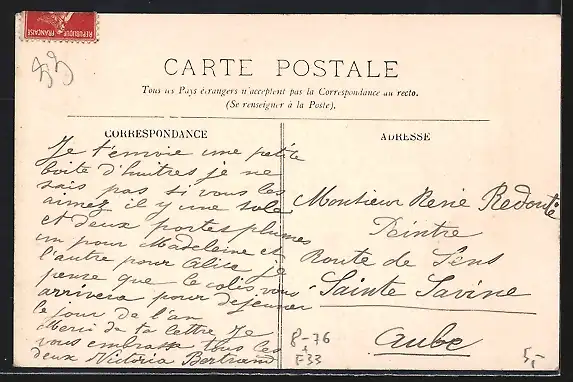 REPUBLIQUE FRANÇAISE
CARTE POSTALE
Tous les Pays étrangers n'acceptent pas la Correspondance au recto.
(Se renseigner à la Poste).
CORRESPONDANCE
Je t'envoie une petite
boite d'huitres je ne
sais pas si vous les
aimez il y une sole
et deux portes plumes
un pour Madeleine et
l'autre pour Alice je
pense que le colis vous
arrivera pour dejeuner
le jour de l'an
Merci de ta lettre Je
vous embrasse tous les
deux Victoria Bertrand
ADRESSE
Monsieur René Redouté
Peintre
Route de Sens
Sainte Savine
Aube
8-76
F33
5,-